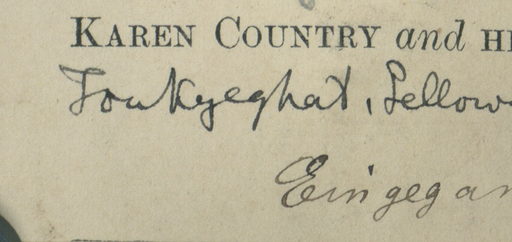 KAREN COUNTRY and HE
Toukyeghat, Sellow
Eingegan